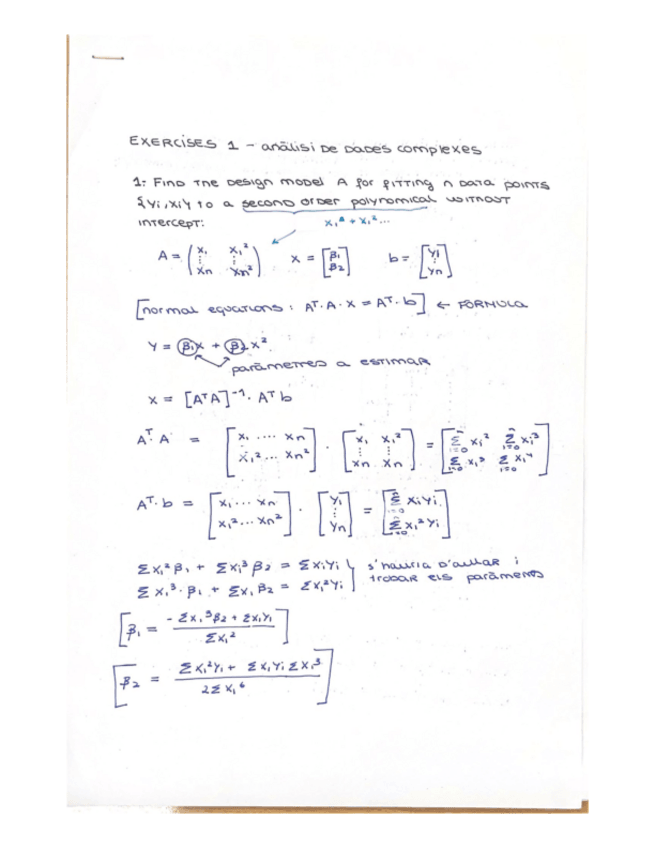 EXERCISES 1 - anàlisi DE DADES complexes
1. FIND THE DESIGN MODEL A for fitting n DATA POINTS
{yi, xi} to a second order polynomical WITHOUT
intercept:
x₁ᴬ + x₁² ...
A = (x₁ x₁² ⋮ ⋮ xn xn²) x = [β₁ β₂] b = [y₁ ⋮ yn]
[normal equations: Aᵀ·A·x = Aᵀ·b] ← FÓRMULA
Y = β₁x + β₂x²
paràmetres a estimar
x = [AᵀA]⁻¹ · Aᵀb
Aᵀ·A = [x₁ .... xn x₁² ... xn²] · [x₁ x₁² ⋮ ⋮ xn xn] = [Σ xi² Σ xi³ Σ xi³ Σ xi⁴]
Aᵀ·b = [x₁ ... xn x₁² ... xn²] · [y₁ ⋮ yn] = [Σ xiyi Σ xi²yi]
Σxi²β₁ + Σxi³β₂ = Σxiyi } s'hauria d'aïllar i
Σxi³·β₁ + Σxi β₂ = Σxi²yi } trobar els paràments
[β₁ = (-Σxi³β₂ + Σxiyi) / Σxi²]
[β₂ = (Σxi²yi + ΣxiyiΣxi³) / 2Σxi⁶]